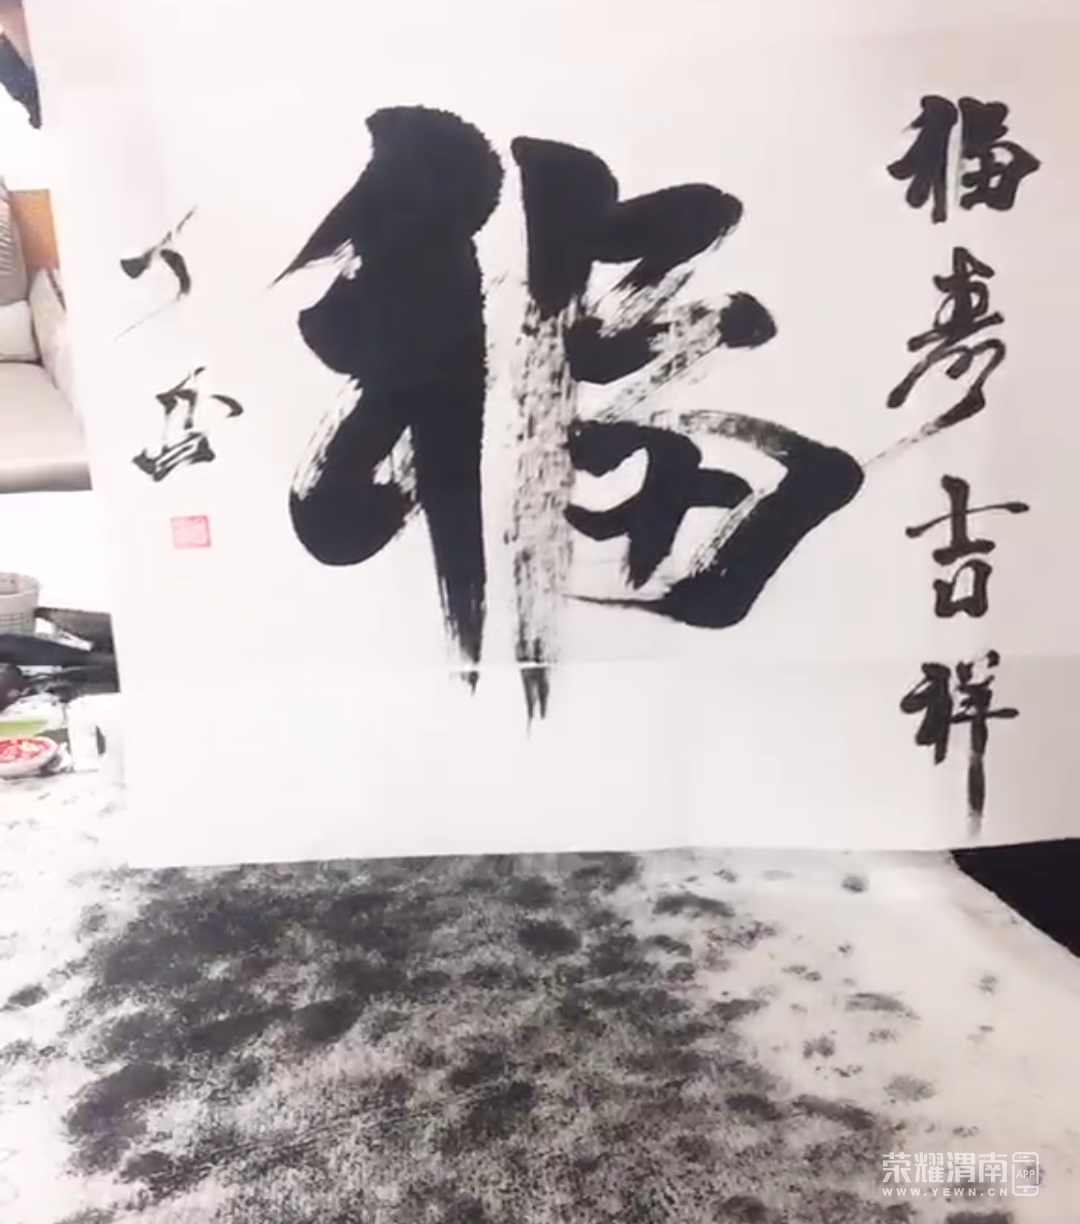 福寿吉祥
福
荣耀渭南 APP
WWW.YEWN.CN